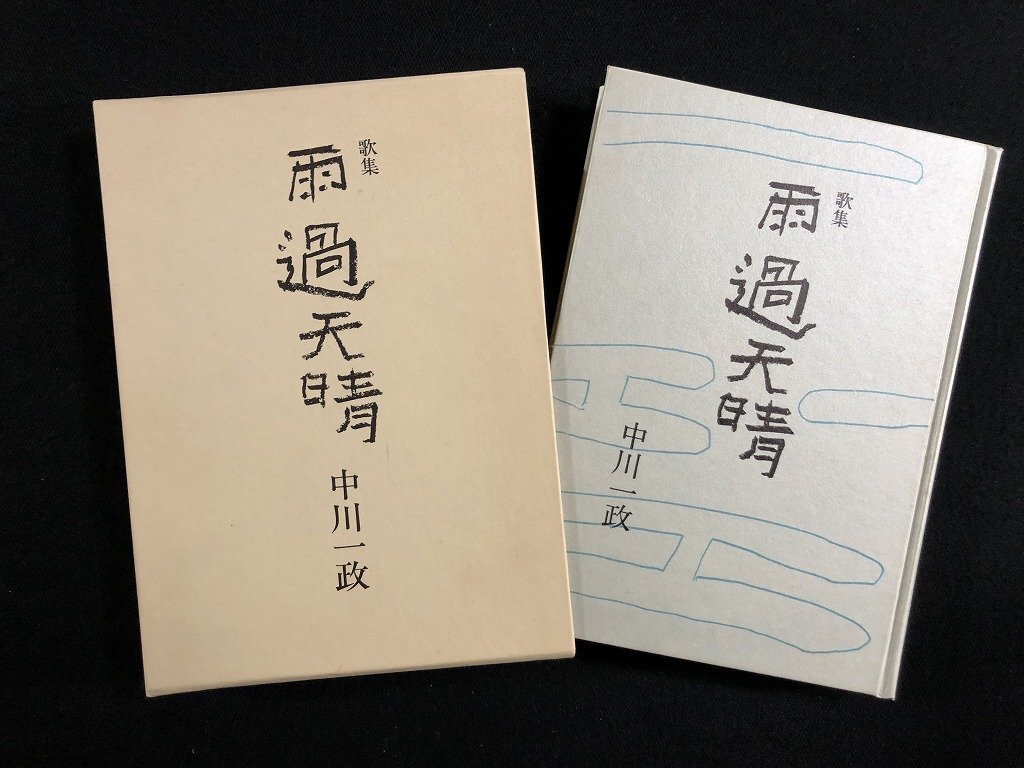 歌集
雨過天晴
中川一政
歌集
雨過天晴
中川一政